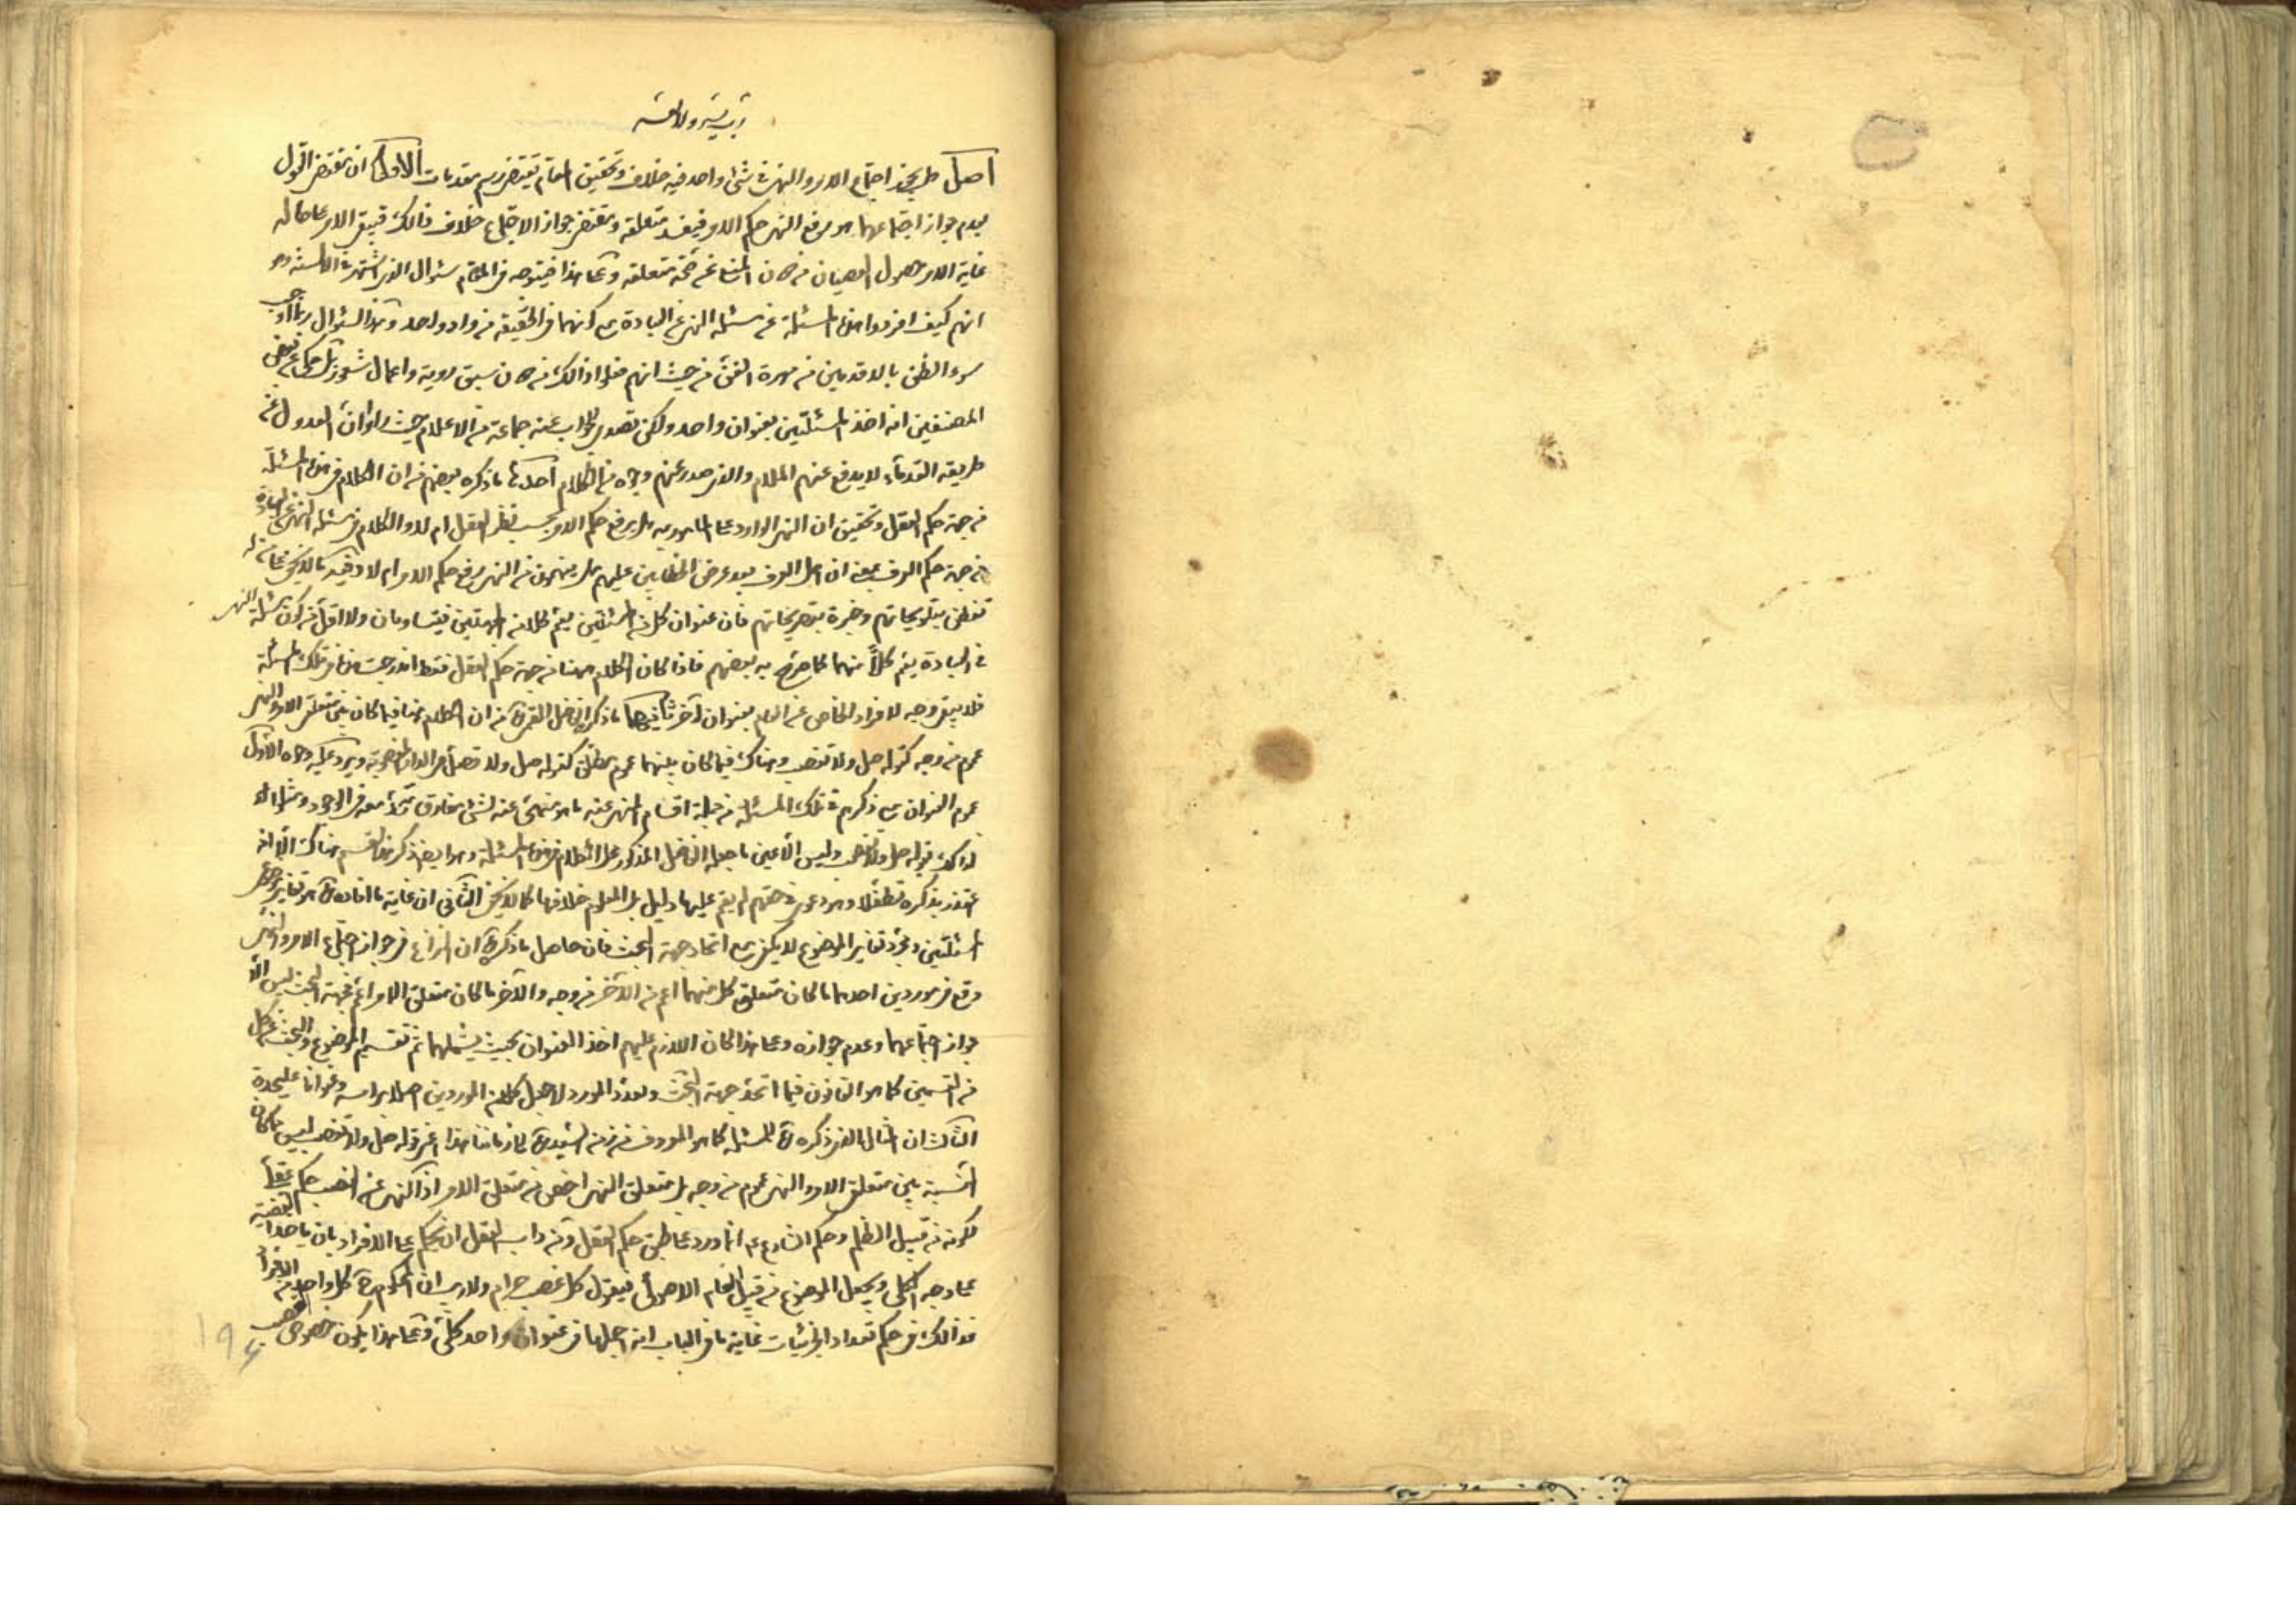 رب يسر ولا تعسر
اصل هل يجوز اجتماع الامر والنهى فى شئ واحد فيه خلاف وتحقيق المقام يقتضى رسم مقدمات الاولى ان مقتضى القول
بعدم جواز اجتماعهما هو رفع النهى حكم الامر فيفسد متعلقه ومقتضى جواز الاجتماع خلاف ذالك فيبقى الامر على حاله
غاية الامر حصول العصيان من دون المنافاة صحة متعلقه وعلى هذا فيتوجه فى المقام سئوال الذى اشتهر فى الالسنة وهو
انهم كيف افردوا هذه المسئلة عن مسئلة النهى عن العبادة مع كونهما فى الحقيقة من واد واحد وهذا السئوال ربما اوجب
سوء الظن بالاقدمين من مهرة الفن من حيث انهم فعلوا ذالك من دون سبق روية واعمال شعور بل حكى عن بعض
المصنفين انه اخذ المسئلتين بعنوان واحد ولكن تصدى للجواب عنه جماعة من الاعلام حيث راوا ان العدول عن
طريقة القدماء لا يدفع عنهم الملام والذى صدر عنهم وجوه من الكلام احدها ما ذكره بعضهم من ان الكلام فى هذه المسئلة
من جهة حكم العقل وتحقيق ان النهى الوارد على المامور به هل يرفع حكم الامر بحسب نظر العقل ام لا والكلام فى مسئلة النهى عن العبادة
من جهة حكم العرف بمعنى ان اهل العرف بعد عرض الخطابين عليهم هل يفهمون من النهى رفع حكم الامر ام لا وفيه ما لا يخفى على من له
تفطن بتلويحاتهم وخبرة بتصريحاتهم فان عنوان كل من المسئلتين يعم كلا من الجهتين فيتساويان ولا اقل من كون مسئلة النهى
فى العبادة يعم كلاً منهما كما صرح به بعضهم فاذا كان الكلام هيهنا من جهة حكم العقل فقط اندرجت هذه فى تلك المسئلة
فلا يبقى وجه لافراد الخاص عن العام بعنوان آخر ثانيهما ما ذكره الفاضل القمى ره من ان الكلام هنا فيما كان بين متعلق الامر والنهى
عموم من وجه كقوله صل ولا تغصب وهناك فيما كان بينهما عموم مطلق كقوله صل ولا تصل فى الدار المغصوبة ويرد عليه وجوه الاول
عموم العنوان مع ذكرهم فى تلك المسئلة من جملة اقسام النهى عنه ما هو منهى عنه لشئ مفارق متحد معه فى الوجود ومثلوا له
لذلك بقوله صل ولا تغصب وليس الا عين ما جعله الفاضل المذكور محل الكلام فى هذه المسئلة وهو ايضا ذكر هذا القسم هناك الا انه
اعتذر بذكره تطفلا وهو دعوى فى حقهم لم يقم عليها دليل بل المعلوم خلافها كما لا يخفى الثانى ان غاية ما افاده ره هو تغاير موضوع
المسئلتين ومجرد تغاير الموضوع لا يكفى مع اتحاد جهة البحث فان حاصل ما ذكره ره ان النزاع فى جواز اجتماع الامر والنهى
وقع فى موردين احدهما ما كان متعلق كل منهما اعم من الآخر من وجه والآخر ما كان متعلق الامر اعم فجهة البحث ليس الا
جواز اجتماعهما وعدم جوازه وعلى هذا كان اللازم عليهم اخذ العنوان بحيث يشملهما ثم تقسيم الموضوع والبحث عن كل
من القسمين كما هو القانون فيما اتحد جهة البحث وتعدد المورد لا جعل كل من الموردين اصلا براسه وعنوانا عليحدة
الثالث ان المثال الذى ذكره ره للمسئلة كما هو المعروف من زمن السيد ره الى زماننا هذا اعنى قوله صل ولا تغصب ليس مما كان
النسبة بين متعلق الامر والنهى عموم من وجه بل متعلق النهى اخص من متعلق الامر اذ النهى عن الغصب حكم عقلى
لكونه من قبيل الظلم وحكم الشارع به انما ورد على طبق حكم العقل ومن داب العقل ان يحكم على الافراد بان ياخذ القضية
على وجه الكلى ويجعل الموضوع من قبيل العام الاصولى فيقول كل غصب حرام ولا ريب ان المحكوم هو كل واحد من الافراد
فذالك فى حكم تعداد الجزئيات غاية ما فى الباب انه اجملها فى عنوان واحد كلى وعلى هذا يكون خصوص الغصب
196